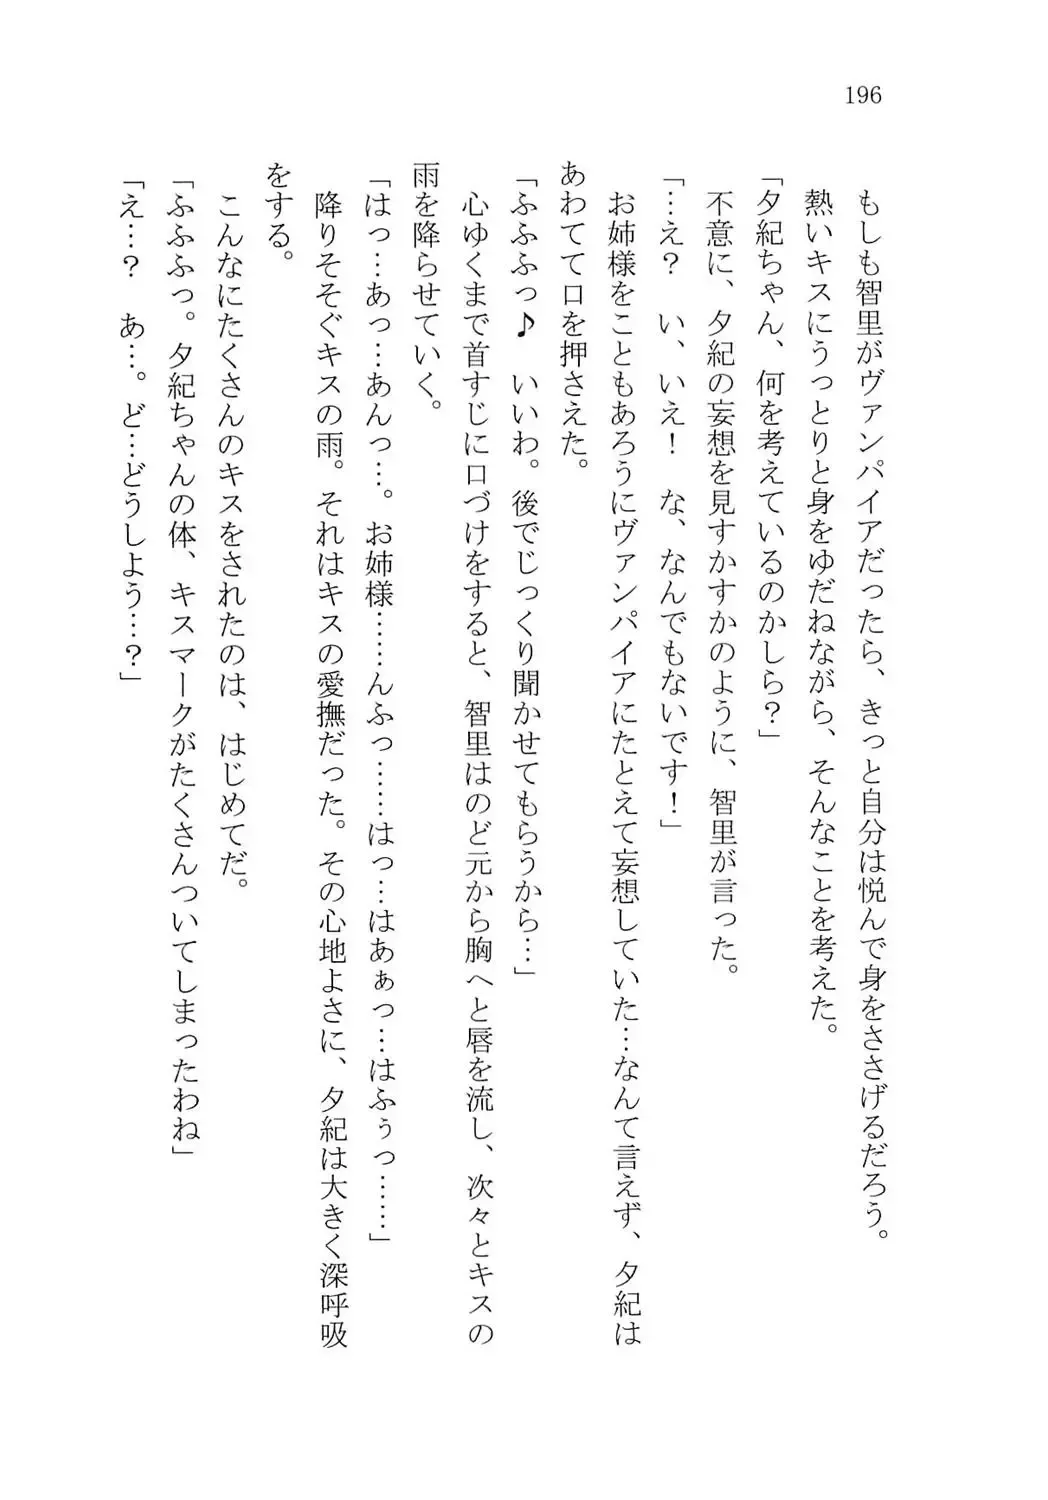 196
もしも智里がヴァンパイアだったら、きっと自分は悦んで身をささげるだろう。
熱いキスにうっとりと身をゆだねながら、そんなことを考えた。
「夕紀ちゃん、何を考えているのかしら？」
不意に、夕紀の妄想を見すかすかのように、智里が言った。
「…え？　い、いえ！　な、なんでもないです！」
お姉様をこともあろうにヴァンパイアにたとえて妄想していた…なんて言えず、夕紀は
あわてて口を押さえた。
「ふふふっ♪　いいわ。後でじっくり聞かせてもらうから…」
心ゆくまで首すじに口づけをすると、智里はのど元から胸へと唇を流し、次々とキスの
雨を降らせていく。
「はっ…あっ…あんっ…。お姉様……んふっ……はっ…はあぁっ…はふぅっ……」
降りそそぐキスの雨。それはキスの愛撫だった。その心地よさに、夕紀は大きく深呼吸
をする。
こんなにたくさんのキスをされたのは、はじめてだ。
「ふふふっ。夕紀ちゃんの体、キスマークがたくさんついてしまったわね」
「え…？　あ…。ど…どうしよう…？」